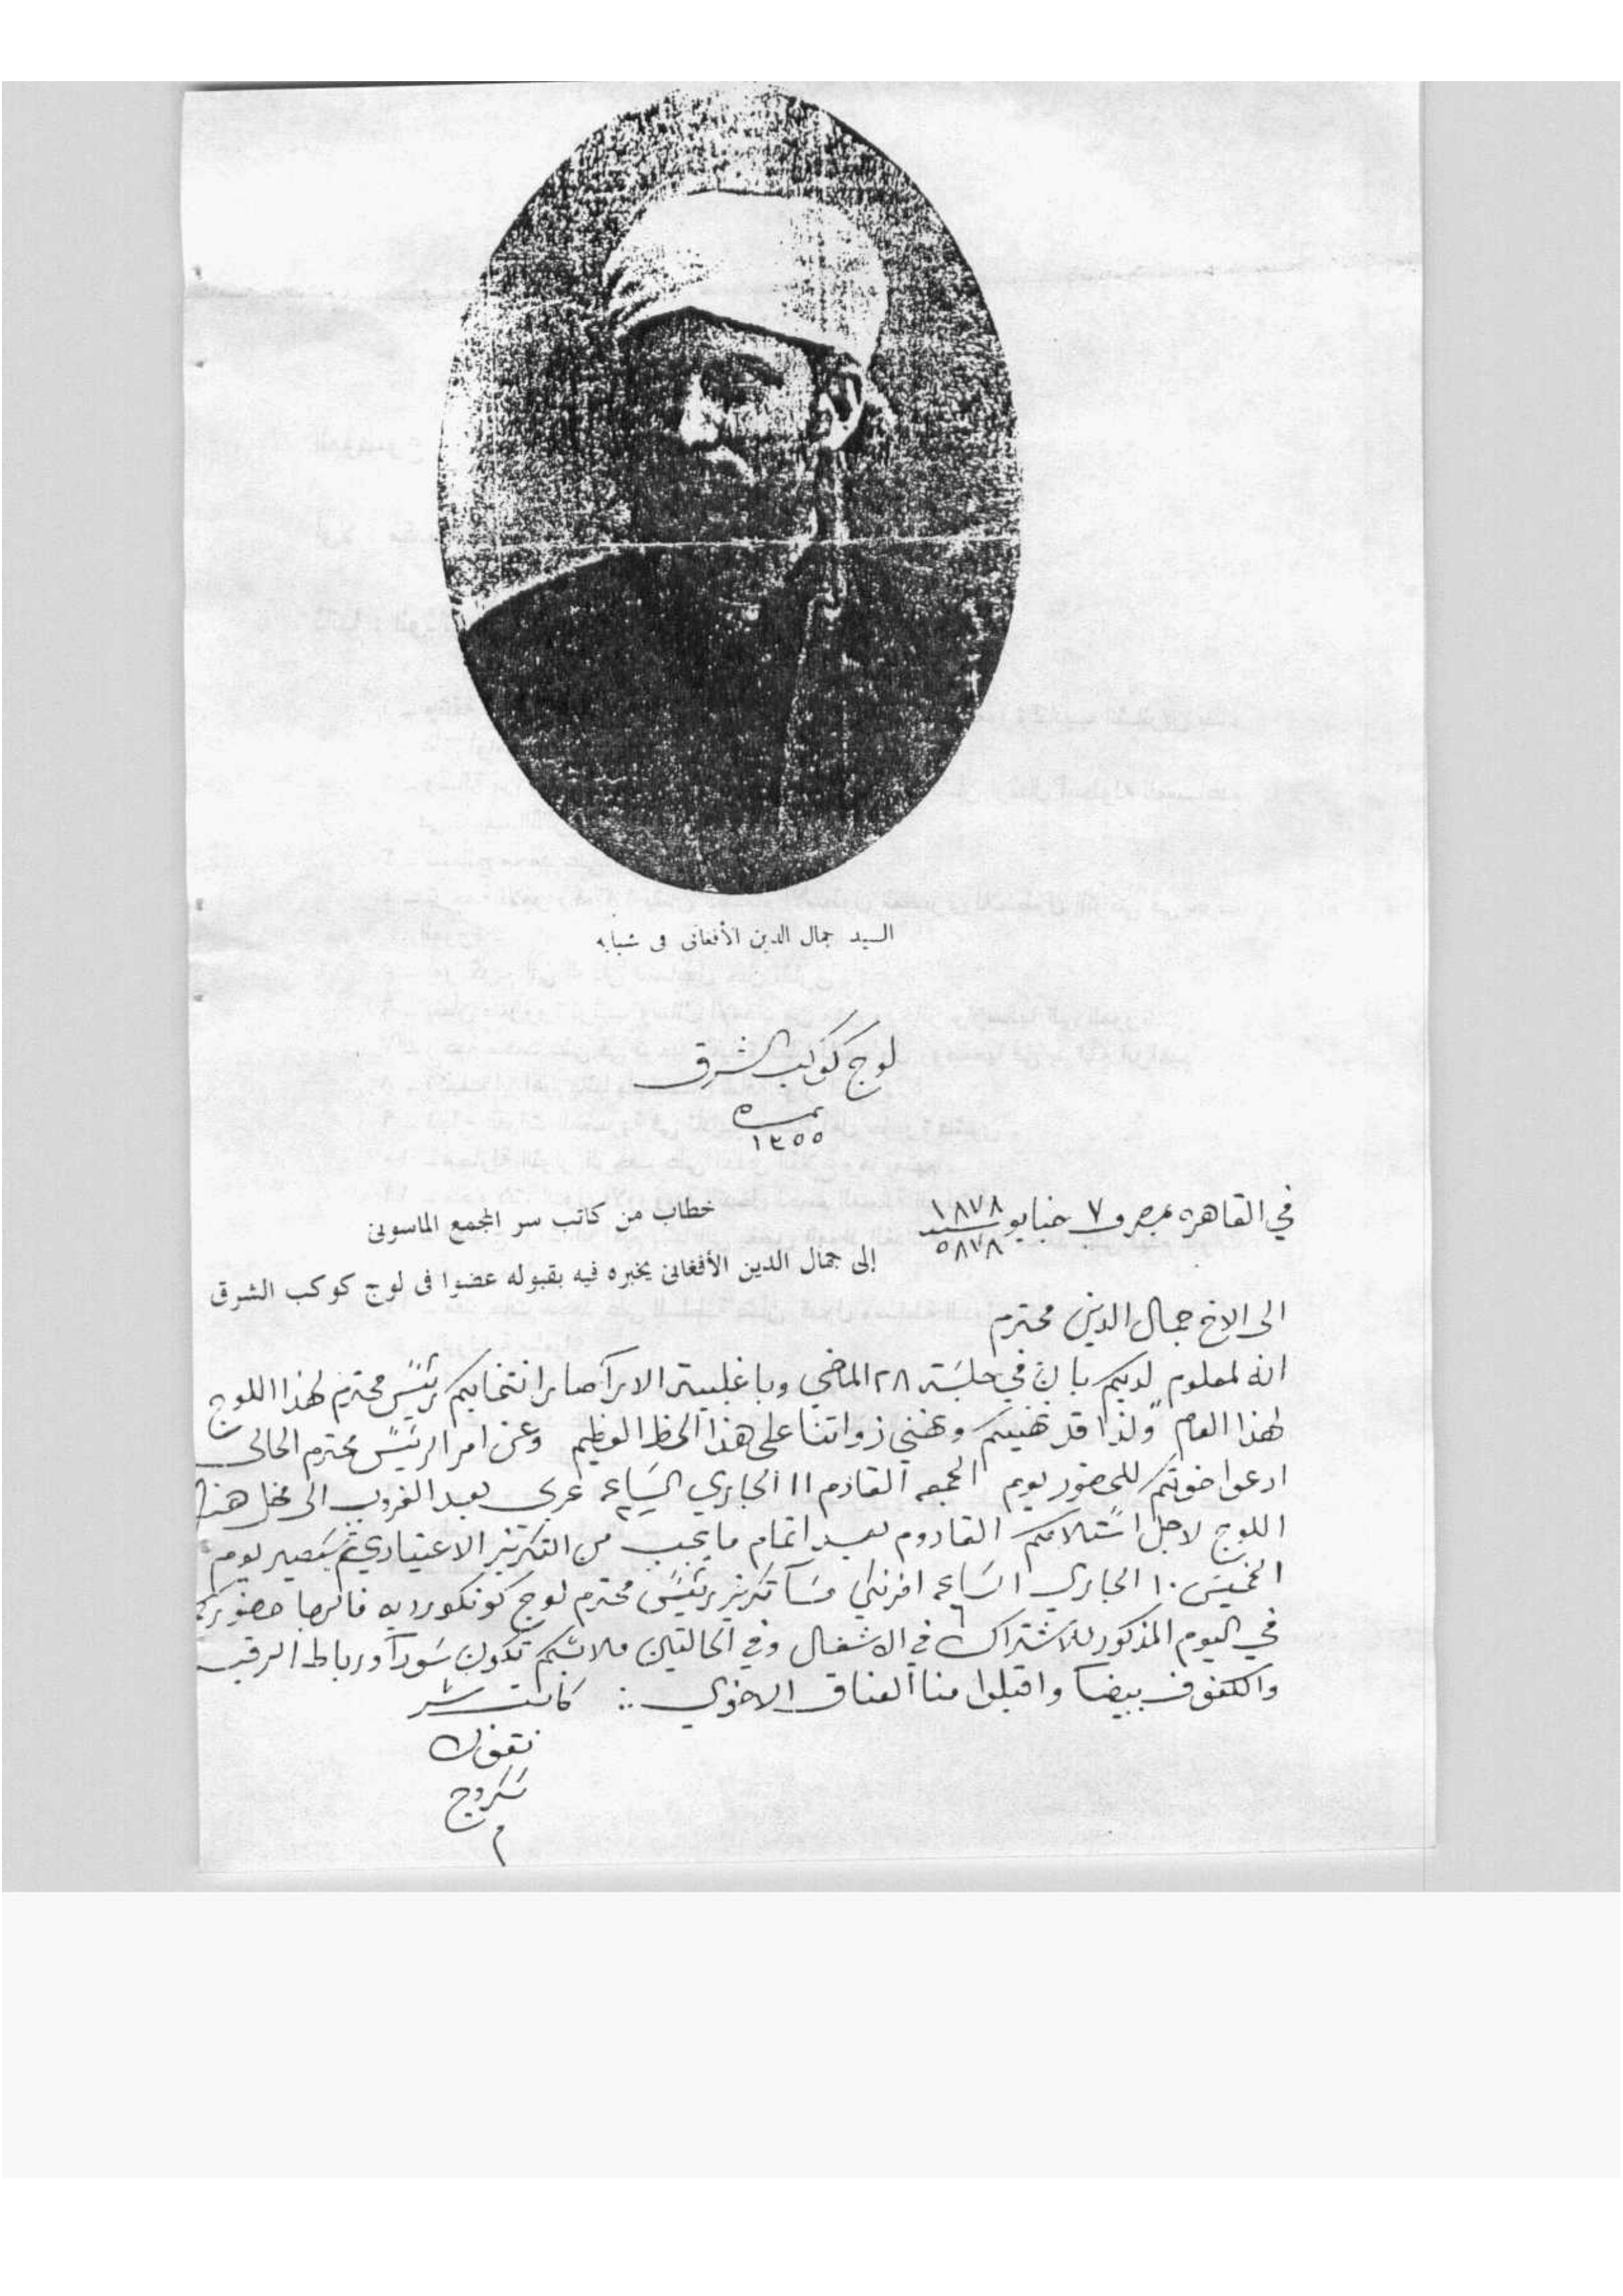 السيد جمال الدين الأفغانى فى شبابه
لوج كوكب الشرق
نمره
١٣٥٥
في القاهره بمصر في ٧ جنايو سنه ١٨٧٨
٥٨٧٨
خطاب من كاتب سر المجمع الماسونى
إلى جمال الدين الأفغانى يخبره فيه بقبوله عضوا فى لوج كوكب الشرق
الى الاخ جمال الدين محترم
انه لمعلوم لديكم بان في جلسة ٢٨ الماضي وباغلبية الارآ صار انتخابكم رئيس محترم لهذا اللوج
لهذا العام ولذا قد نهنيكم ونهني ذواتنا على هذا الحظ العظيم وعن امر الرئيس محترم الحالى
ادعوا خوتكم للحضور يوم الجمعه القادم ١١ الجاري الساعه ٢ عربى بعد الغروب الى محل هذا
اللوج لاجل استلامكم القادوم بعد اتمام ما يجب من التكريز الاعتيادي ثم سيصير يوم
الخميس ١٠ الجاري الساعه ٦ افرنكي مسآ تكريز رئيس محترم لوج كونكورديه فالرجا حضوركم
في اليوم المذكور للاشتراك في الاشغال وفي الحالتين ملابسكم تكون سودآ ورباط الرقبه
والكفوف بيضا واقبلوا منا العناق الاخوي كاتب سر
نقولا
سكروج